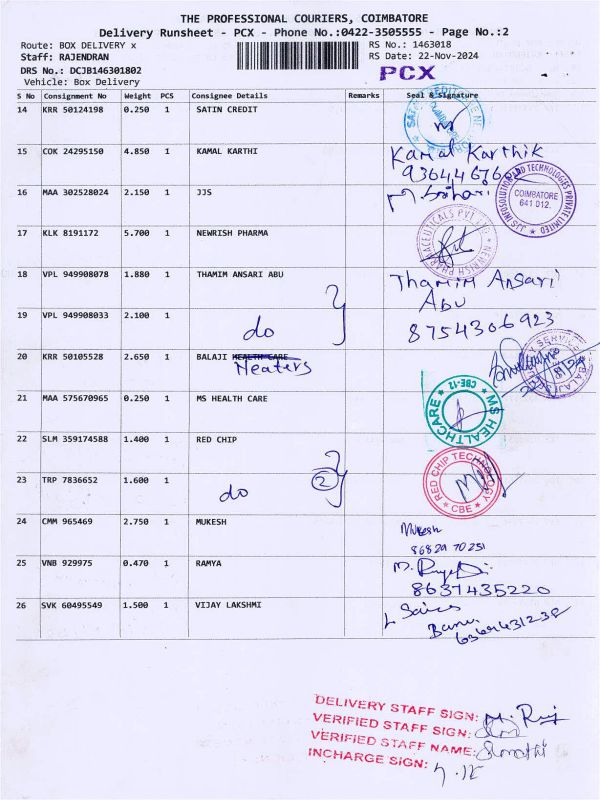 THE PROFESSIONAL COURIERS, COIMBATORE
Delivery Runsheet - PCX - Phone No.:0422-3505555 - Page No.:2
Route: BOX DELIVERY x RS No.: 1463018
Staff: RAJENDRAN RS Date: 22-Nov-2024
DRS No.: DCJB146301802 PCX
Vehicle: Box Delivery
S No Consignment No Weight PCS Consignee Details Remarks Seal & Signature
14 KRR 50124198 0.250 1 SATIN CREDIT
15 COK 24295150 4.850 1 KAMAL KARTHI Kamal Karthik
16 MAA 302528024 2.150 1 JJS
JJS INFOSOLUTION AND TECHNOLOGIES PRIVATE LIMITED
COIMBATORE
641 012.
17 KLK 8191172 5.700 1 NEWRISH PHARMA
NEWRISH PHARMACEUTICALS PVT
18 VPL 949908078 1.880 1 THAMIM ANSARI ABU Thamim Ansari
Abu
19 VPL 949908033 2.100 1 do 8754306923
20 KRR 50105528 2.650 1 BALAJI HEALTH CARE
Heaters
21 MAA 575670965 0.250 1 MS HEALTH CARE
MS HEALTHCARE
CBE-12
22 SLM 359174588 1.400 1 RED CHIP
23 TRP 7836652 1.600 1 do 2
RED CHIP TECHNOLOGY
CBE
24 CMM 965469 2.750 1 MUKESH Mukesh
8682970251
25 VNB 929975 0.470 1 RAMYA
8637435220
26 SVK 60495549 1.500 1 VIJAY LAKSHMI
Banu
DELIVERY STAFF SIGN: M. Raj
VERIFIED STAFF SIGN:
VERIFIED STAFF NAME:
INCHARGE SIGN: